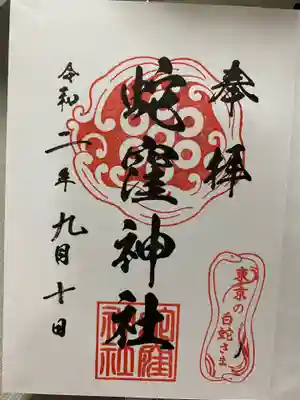 奉拝
蛇窪神社
令和二年九月十日
東京の
白蛇さま
蛇窪
神社